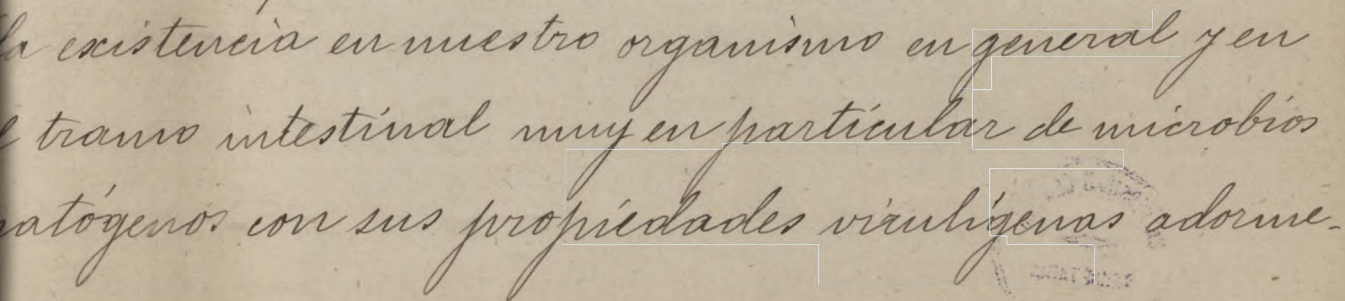 la existencia en nuestro organismo en general y en
l tramo intestinal muy en particular de microbios
patógenos con sus propiedades virulígenas adorme-